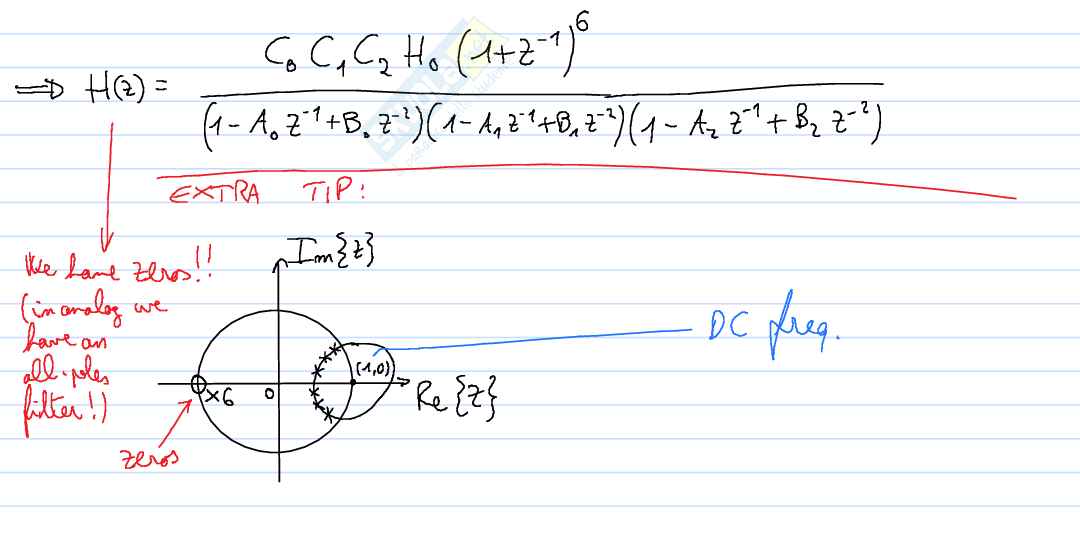 ⟹ H(z) = C₀ C₁ C₂ H₀ (1+z⁻¹)⁶ / (1 - A₀ z⁻¹ + B₀ z⁻²)(1 - A₁ z⁻¹ + B₁ z⁻²)(1 - A₂ z⁻¹ + B₂ z⁻²)
EXTRA TIP:
Im{z}
We have zeros!!
(in analog we
have an
all-poles
filter!)
DC freq.
(1,0)
×6
0
Re{z}
zeros